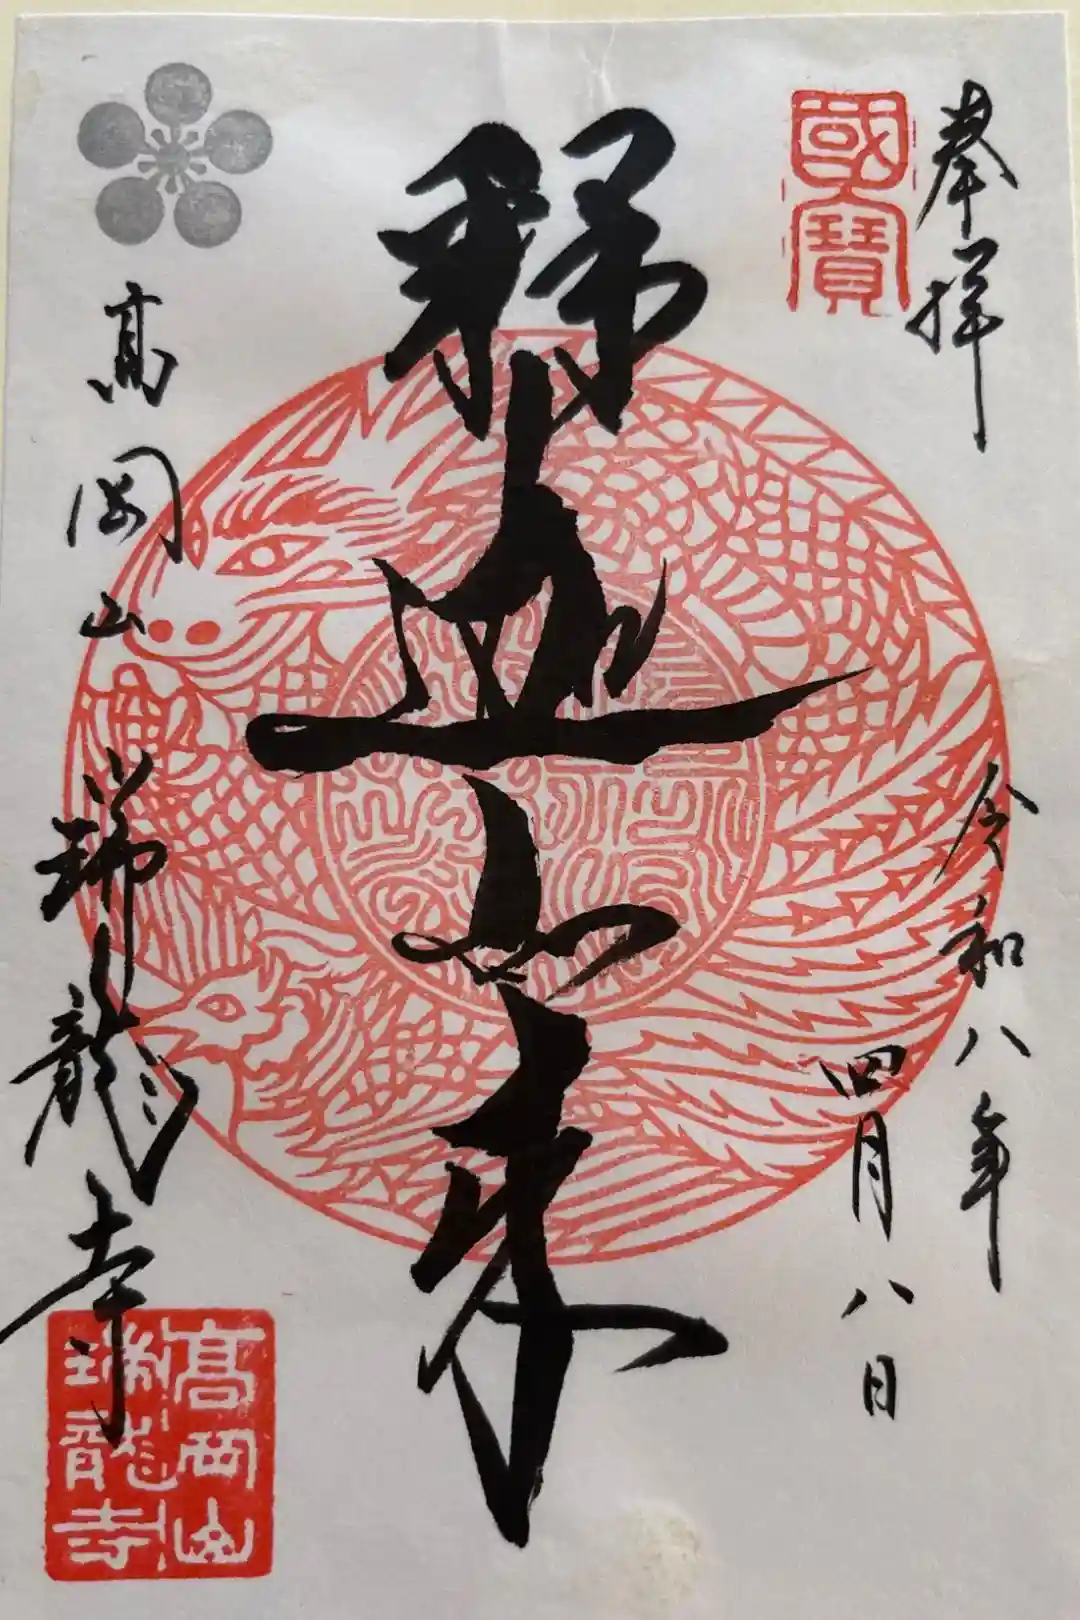 奉拝
國寶
令和八年
四月八日
釋迦如来
高岡山
瑞龍寺
髙岡山
瑞龍寺